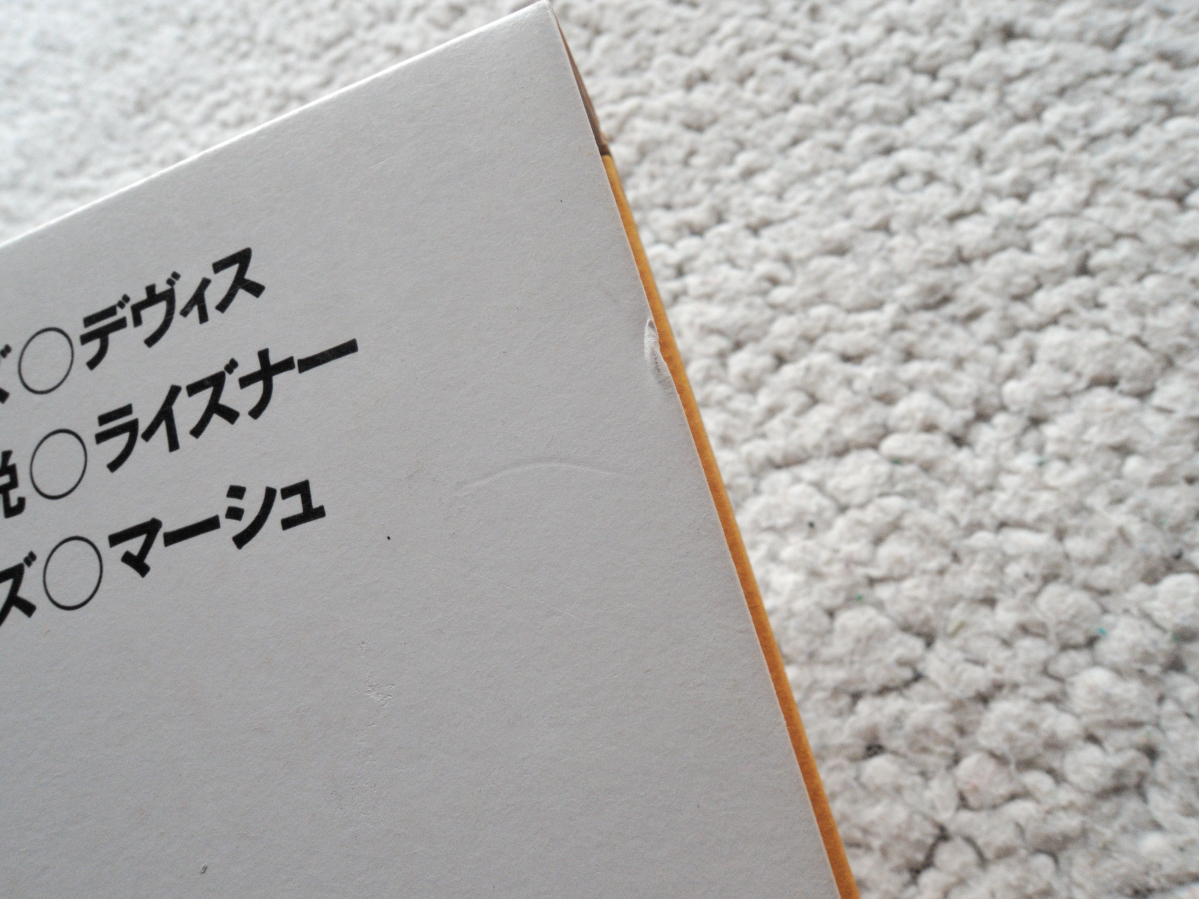 ズ○デヴィス
説○ライズナー
ズ○マーシュ